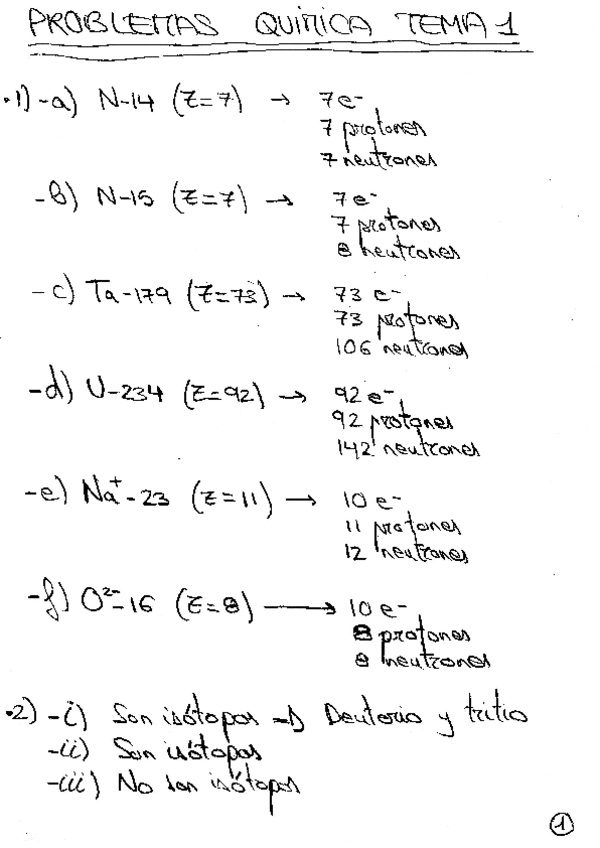 PROBLEMAS QUÍMICA TEMA 1
·1) -a) N-14 (Z=7) → 7e-
7 protones
7 neutrones
-b) N-15 (Z=7) → 7e-
7 protones
8 neutrones
-c) Ta-179 (Z=73) → 73 e-
73 protones
106 neutrones
-d) U-234 (Z=92) → 92 e-
92 protones
142 neutrones
-e) Na⁺-23 (Z=11) → 10 e-
11 protones
12 neutrones
-f) O²⁻-16 (Z=8) → 10 e-
8 protones
8 neutrones
·2) -i) Son isótopos → Deuterio y tritio
-ii) Son isótopos
-iii) No son isótopos
1